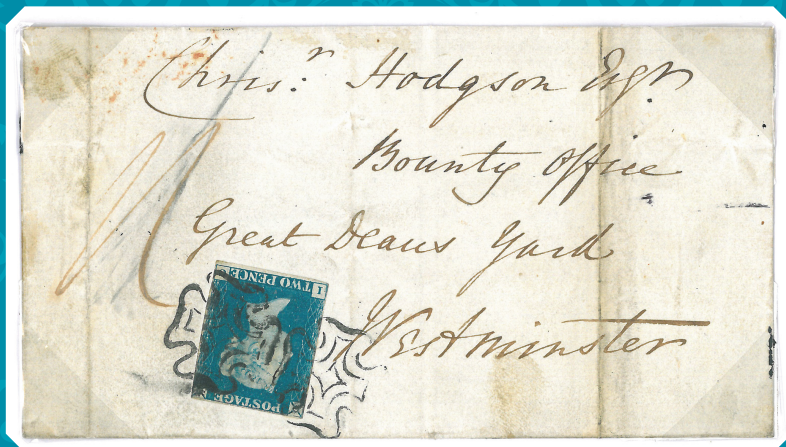 Chris:r Hodgson Esqr
Bounty Office
Great Deans Yard
Westminster
POSTAGE
TWO PENCE
I